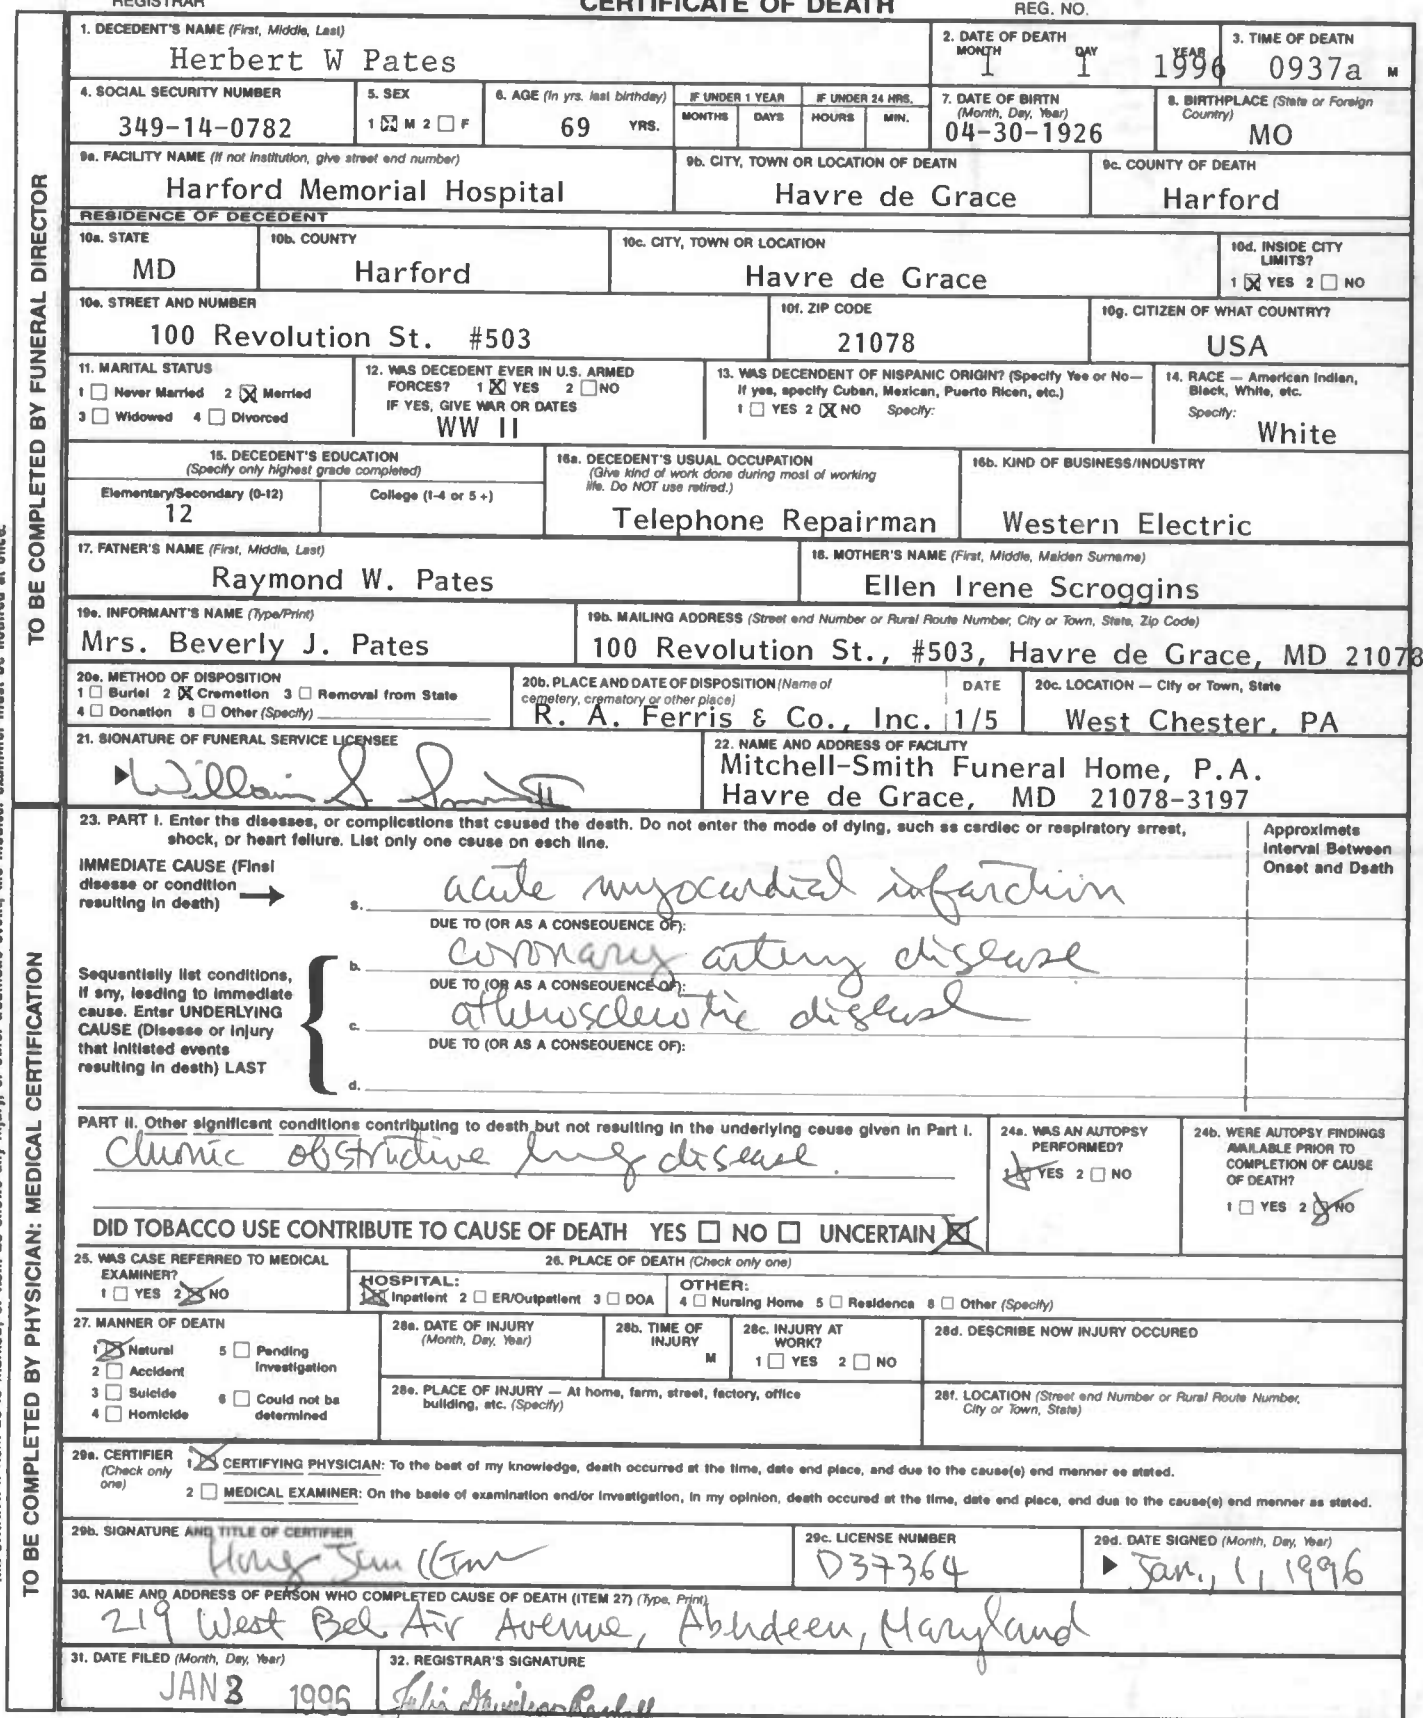 REGISTRAR CERTIFICATE OF DEATH REG. NO.
TO BE COMPLETED BY FUNERAL DIRECTOR
1. DECEDENT'S NAME (First, Middle, Last)
Herbert W Pates
2. DATE OF DEATH
MONTH DAY YEAR
1 1 1996
3. TIME OF DEATH
0937a M
4. SOCIAL SECURITY NUMBER
349-14-0782
5. SEX
1 ☒ M 2 ☐ F
6. AGE (In yrs. last birthday)
69 YRS.
IF UNDER 1 YEAR
MONTHS DAYS
IF UNDER 24 HRS.
HOURS MIN.
7. DATE OF BIRTH
(Month, Day, Year)
04-30-1926
8. BIRTHPLACE (State or Foreign
Country)
MO
9a. FACILITY NAME (If not institution, give street and number)
Harford Memorial Hospital
9b. CITY, TOWN OR LOCATION OF DEATH
Havre de Grace
9c. COUNTY OF DEATH
Harford
RESIDENCE OF DECEDENT
10a. STATE
MD
10b. COUNTY
Harford
10c. CITY, TOWN OR LOCATION
Havre de Grace
10d. INSIDE CITY
LIMITS?
1 ☒ YES 2 ☐ NO
10e. STREET AND NUMBER
100 Revolution St. #503
10f. ZIP CODE
21078
10g. CITIZEN OF WHAT COUNTRY?
USA
11. MARITAL STATUS
1 ☐ Never Married 2 ☒ Married
3 ☐ Widowed 4 ☐ Divorced
12. WAS DECEDENT EVER IN U.S. ARMED
FORCES? 1 ☒ YES 2 ☐ NO
IF YES, GIVE WAR OR DATES
WW II
13. WAS DECENDENT OF HISPANIC ORIGIN? (Specify Yes or No—
If yes, specify Cuban, Mexican, Puerto Rican, etc.)
1 ☐ YES 2 ☒ NO Specify:
14. RACE — American Indian,
Black, White, etc.
Specify:
White
15. DECEDENT'S EDUCATION
(Specify only highest grade completed)
Elementary/Secondary (0-12) College (1-4 or 5 +)
12
16a. DECEDENT'S USUAL OCCUPATION
(Give kind of work done during most of working
life. Do NOT use retired.)
Telephone Repairman
16b. KIND OF BUSINESS/INDUSTRY
Western Electric
17. FATHER'S NAME (First, Middle, Last)
Raymond W. Pates
18. MOTHER'S NAME (First, Middle, Maiden Surname)
Ellen Irene Scroggins
19a. INFORMANT'S NAME (Type/Print)
Mrs. Beverly J. Pates
19b. MAILING ADDRESS (Street and Number or Rural Route Number, City or Town, State, Zip Code)
100 Revolution St., #503, Havre de Grace, MD 21078
20a. METHOD OF DISPOSITION
1 ☐ Burial 2 ☒ Cremation 3 ☐ Removal from State
4 ☐ Donation 8 ☐ Other (Specify)
20b. PLACE AND DATE OF DISPOSITION (Name of
cemetery, crematory or other place)
R. A. Ferris & Co., Inc.
DATE
1/5
20c. LOCATION — City or Town, State
West Chester, PA
21. SIGNATURE OF FUNERAL SERVICE LICENSEE
William S Smith II
22. NAME AND ADDRESS OF FACILITY
Mitchell-Smith Funeral Home, P.A.
Havre de Grace, MD 21078-3197
TO BE COMPLETED BY PHYSICIAN: MEDICAL CERTIFICATION
23. PART I. Enter the diseases, or complications that caused the death. Do not enter the mode of dying, such as cardiac or respiratory arrest,
shock, or heart failure. List only one cause on each line.
Approximate
Interval Between
Onset and Death
IMMEDIATE CAUSE (Final
disease or condition
resulting in death)
a. acute myocardial infarction
DUE TO (OR AS A CONSEQUENCE OF):
Sequentially list conditions,
if any, leading to immediate
cause. Enter UNDERLYING
CAUSE (Disease or injury
that initiated events
resulting in death) LAST
b. coronary artery disease
DUE TO (OR AS A CONSEQUENCE OF):
c. atherosclerotic disease
DUE TO (OR AS A CONSEQUENCE OF):
d.
PART II. Other significant conditions contributing to death but not resulting in the underlying cause given in Part I.
Chronic obstructive lung disease.
24a. WAS AN AUTOPSY
PERFORMED?
1 ☒ YES 2 ☐ NO
24b. WERE AUTOPSY FINDINGS
AVAILABLE PRIOR TO
COMPLETION OF CAUSE
OF DEATH?
1 ☐ YES 2 ☒ NO
DID TOBACCO USE CONTRIBUTE TO CAUSE OF DEATH YES ☐ NO ☐ UNCERTAIN ☒
25. WAS CASE REFERRED TO MEDICAL
EXAMINER?
1 ☐ YES 2 ☒ NO
26. PLACE OF DEATH (Check only one)
HOSPITAL:
1 ☒ Inpatient 2 ☐ ER/Outpatient 3 ☐ DOA
OTHER:
4 ☐ Nursing Home 5 ☐ Residence 8 ☐ Other (Specify)
27. MANNER OF DEATH
1 ☒ Natural 5 ☐ Pending
2 ☐ Accident Investigation
3 ☐ Suicide 6 ☐ Could not be
4 ☐ Homicide determined
28a. DATE OF INJURY
(Month, Day, Year)
28b. TIME OF
INJURY
M
28c. INJURY AT
WORK?
1 ☐ YES 2 ☐ NO
28d. DESCRIBE HOW INJURY OCCURED
28e. PLACE OF INJURY — At home, farm, street, factory, office
building, etc. (Specify)
28f. LOCATION (Street and Number or Rural Route Number,
City or Town, State)
29a. CERTIFIER
(Check only
one)
1 ☒ CERTIFYING PHYSICIAN: To the best of my knowledge, death occurred at the time, date and place, and due to the cause(s) and manner as stated.
2 ☐ MEDICAL EXAMINER: On the basis of examination and/or investigation, in my opinion, death occured at the time, date and place, and due to the cause(s) and manner as stated.
29b. SIGNATURE AND TITLE OF CERTIFIER
29c. LICENSE NUMBER
D37364
29d. DATE SIGNED (Month, Day, Year)
Jan., 1, 1996
30. NAME AND ADDRESS OF PERSON WHO COMPLETED CAUSE OF DEATH (ITEM 27) (Type, Print)
219 West Bel Air Avenue, Aberdeen, Maryland
31. DATE FILED (Month, Day, Year)
JAN 3 1996
32. REGISTRAR'S SIGNATURE